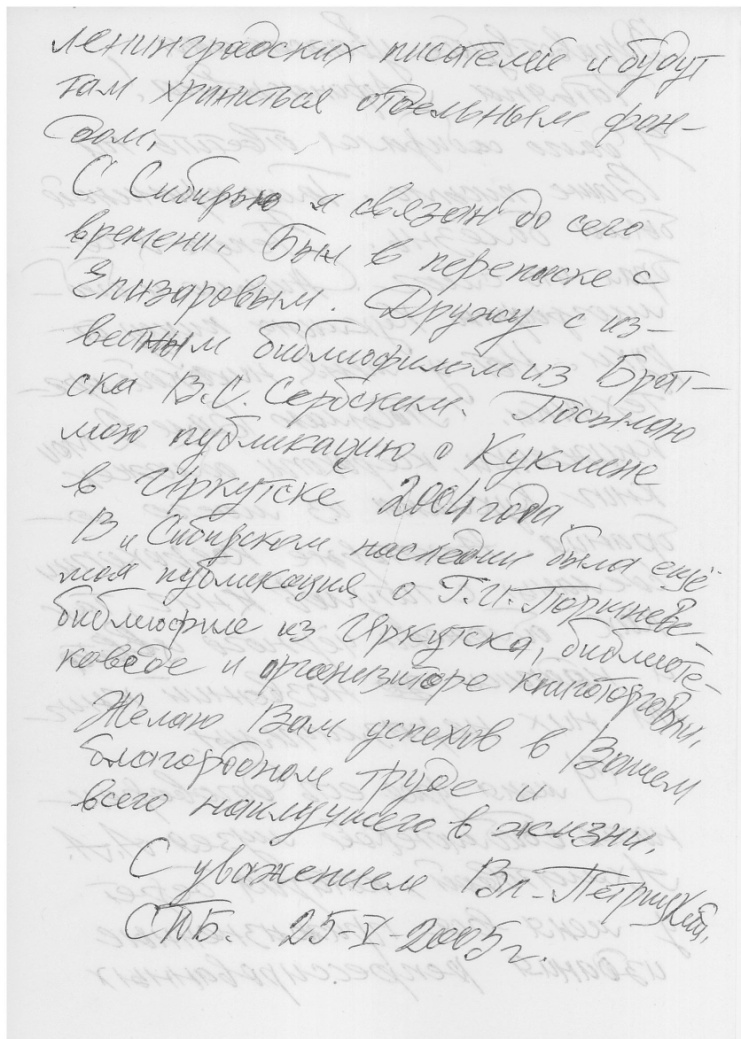 ленинградских писателей и будут
там храниться отдельным фон-
дом.
С Сибирью я связан до сего
времени. Был в переписке с
Елизаровым. Дружу с из-
вестным библиофилом из Брат-
ска В.С. Сербским. Посылаю
мою публикацию о Куклине
в Иркутске 2004 года.
В „Сибирском наследии была ещё
моя публикация о Г.И. Поршневе-
библиофиле из Иркутска, библиоте-
коведе и организаторе книготорговли.
Желаю Вам успехов в Вашем
благородном труде и
всего наилучшего в жизни.
С уважением Вл. Петрицкий.
СПБ. 25-V-2005г.